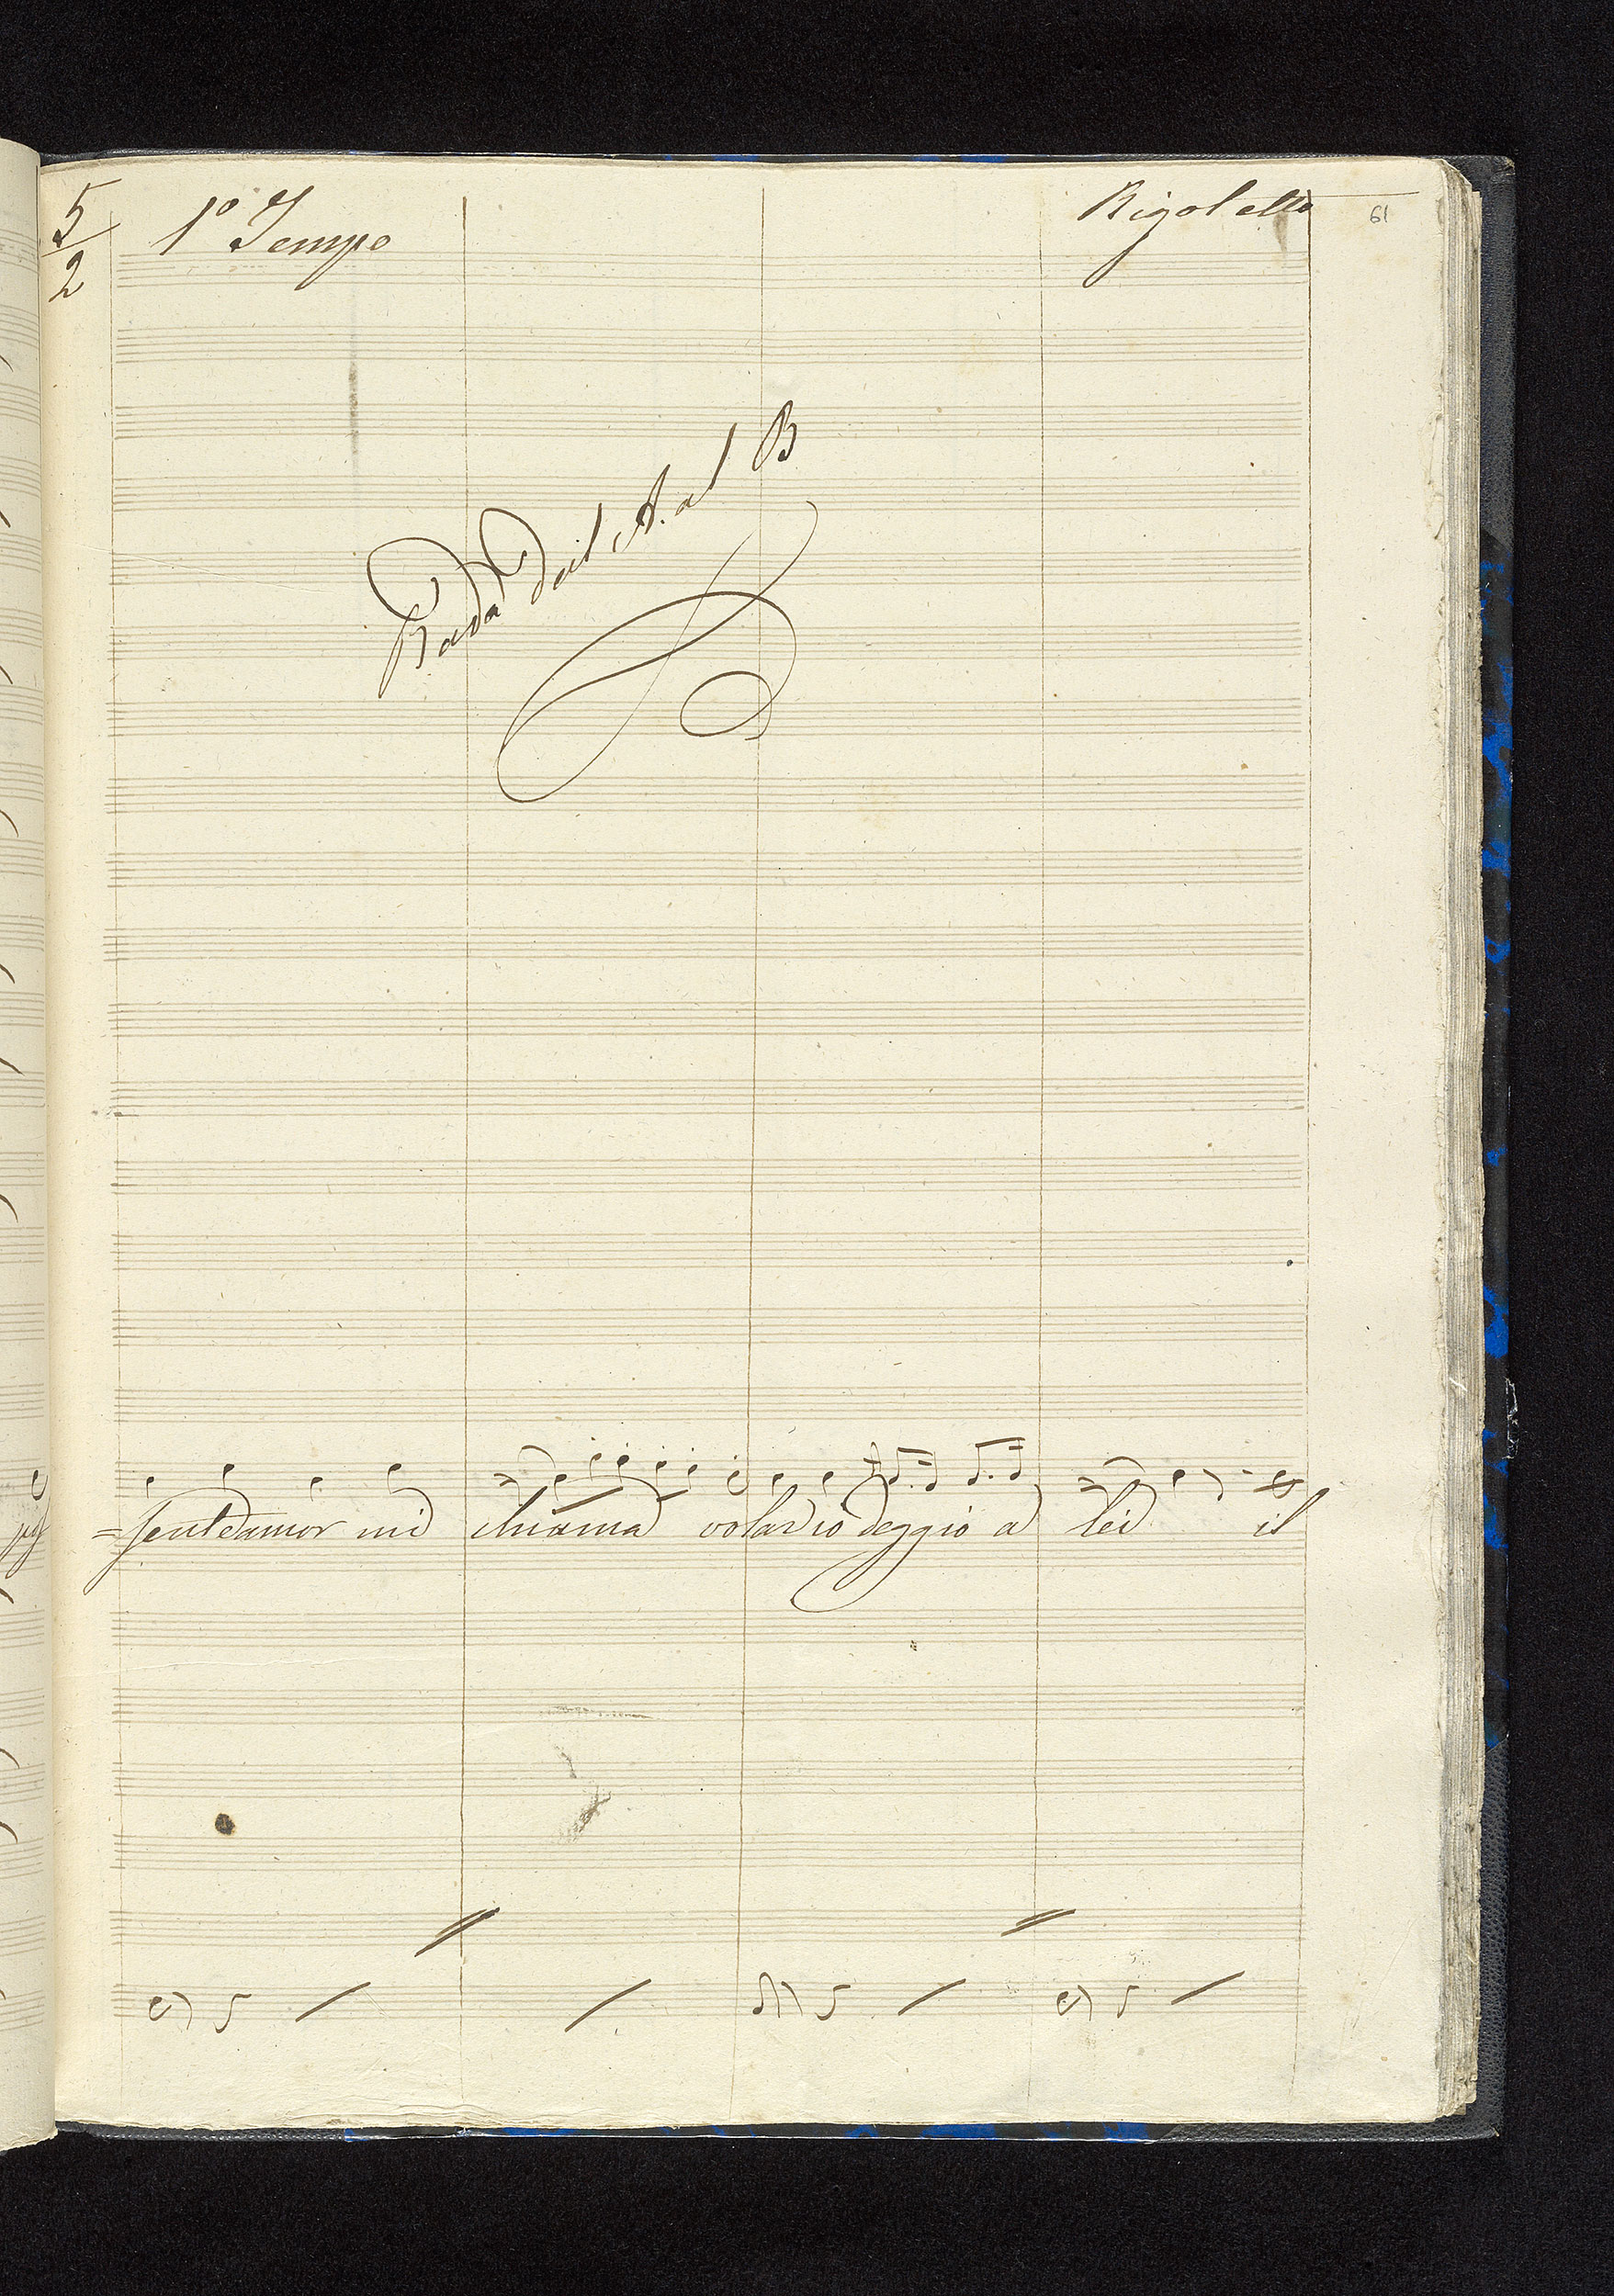 5/2
1º Tempo
Rigoletto
61
Dal A. al B
=sente damor mi chiama volar io deggio a lei il